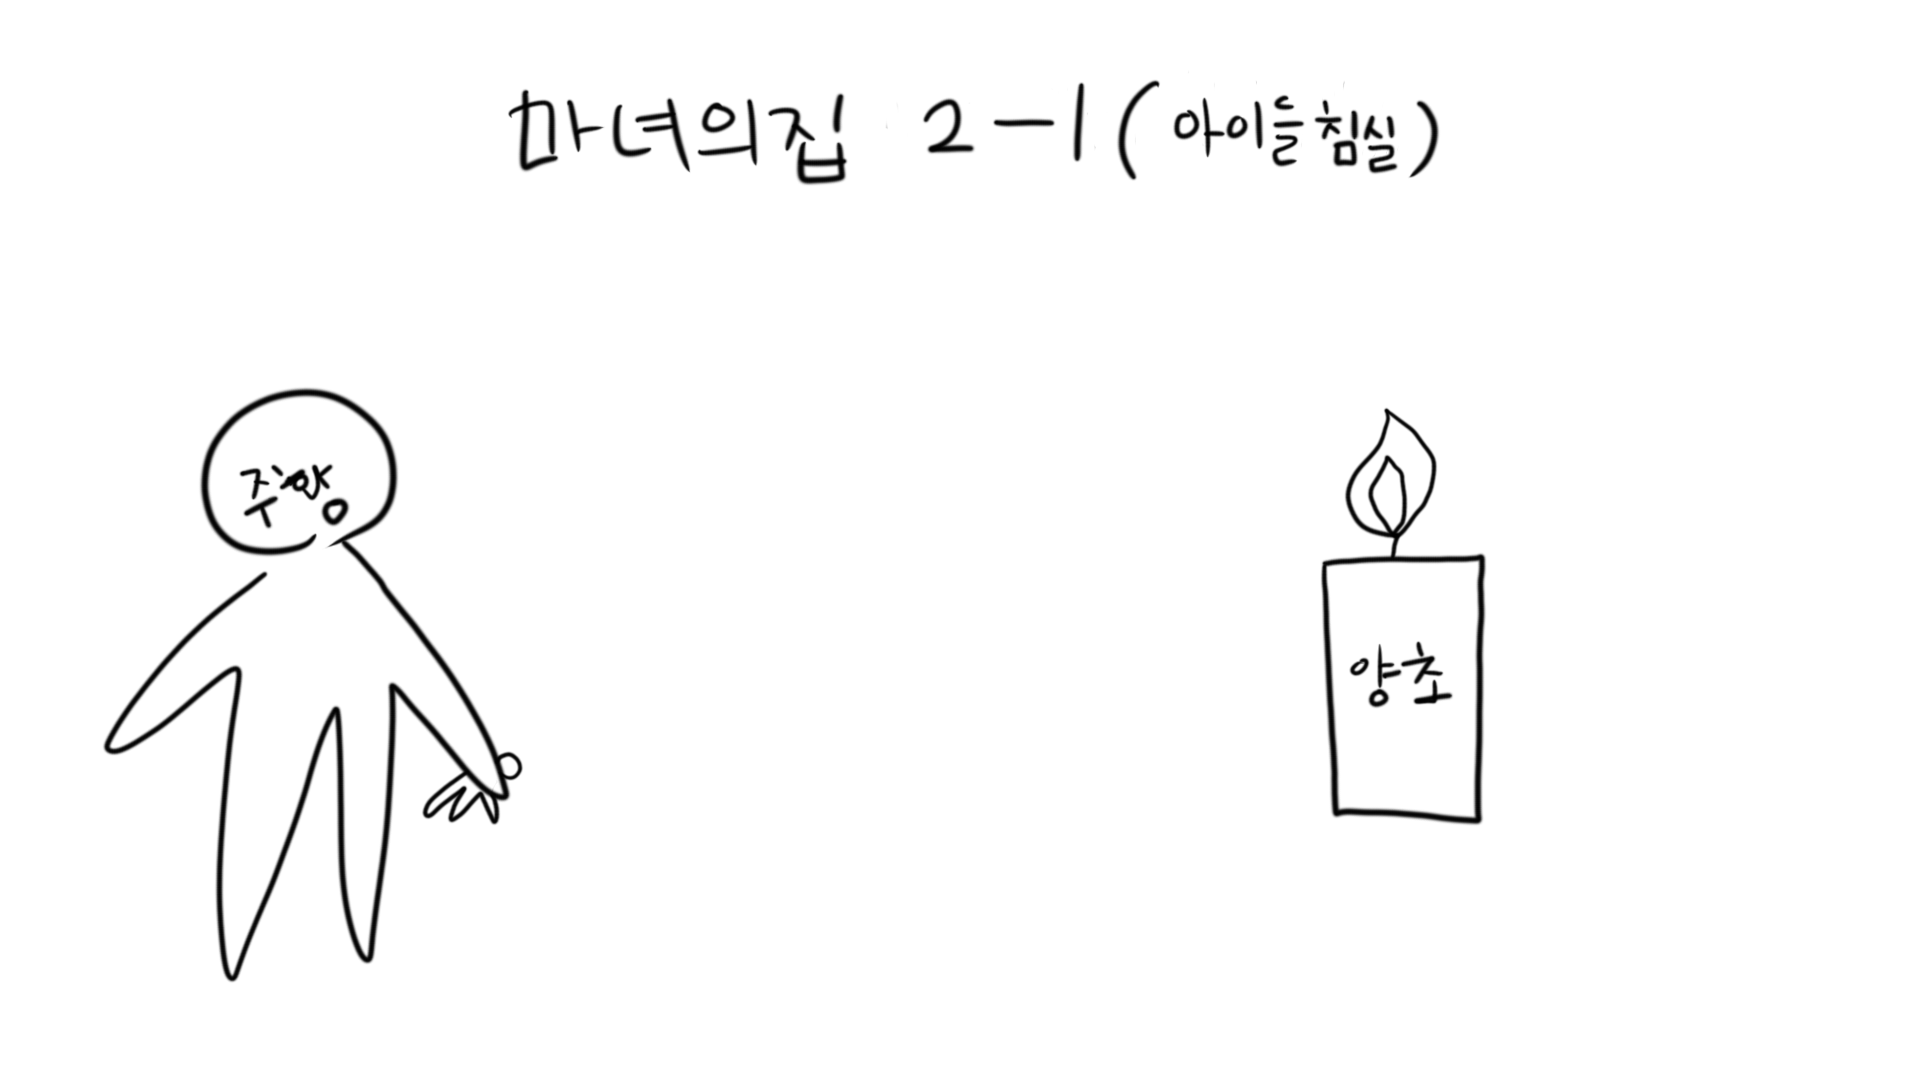 마녀의집 2-1 (아이들침실)
양초